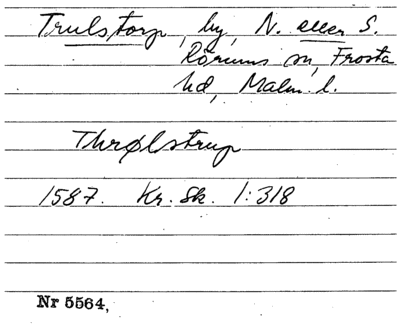 Trulstorp, by, N. eller S.
Rörums sn, Frosta
hd, Malm. l.
Thrølstrup
1587. Kr. Sk. 1:318
Nr 5564,